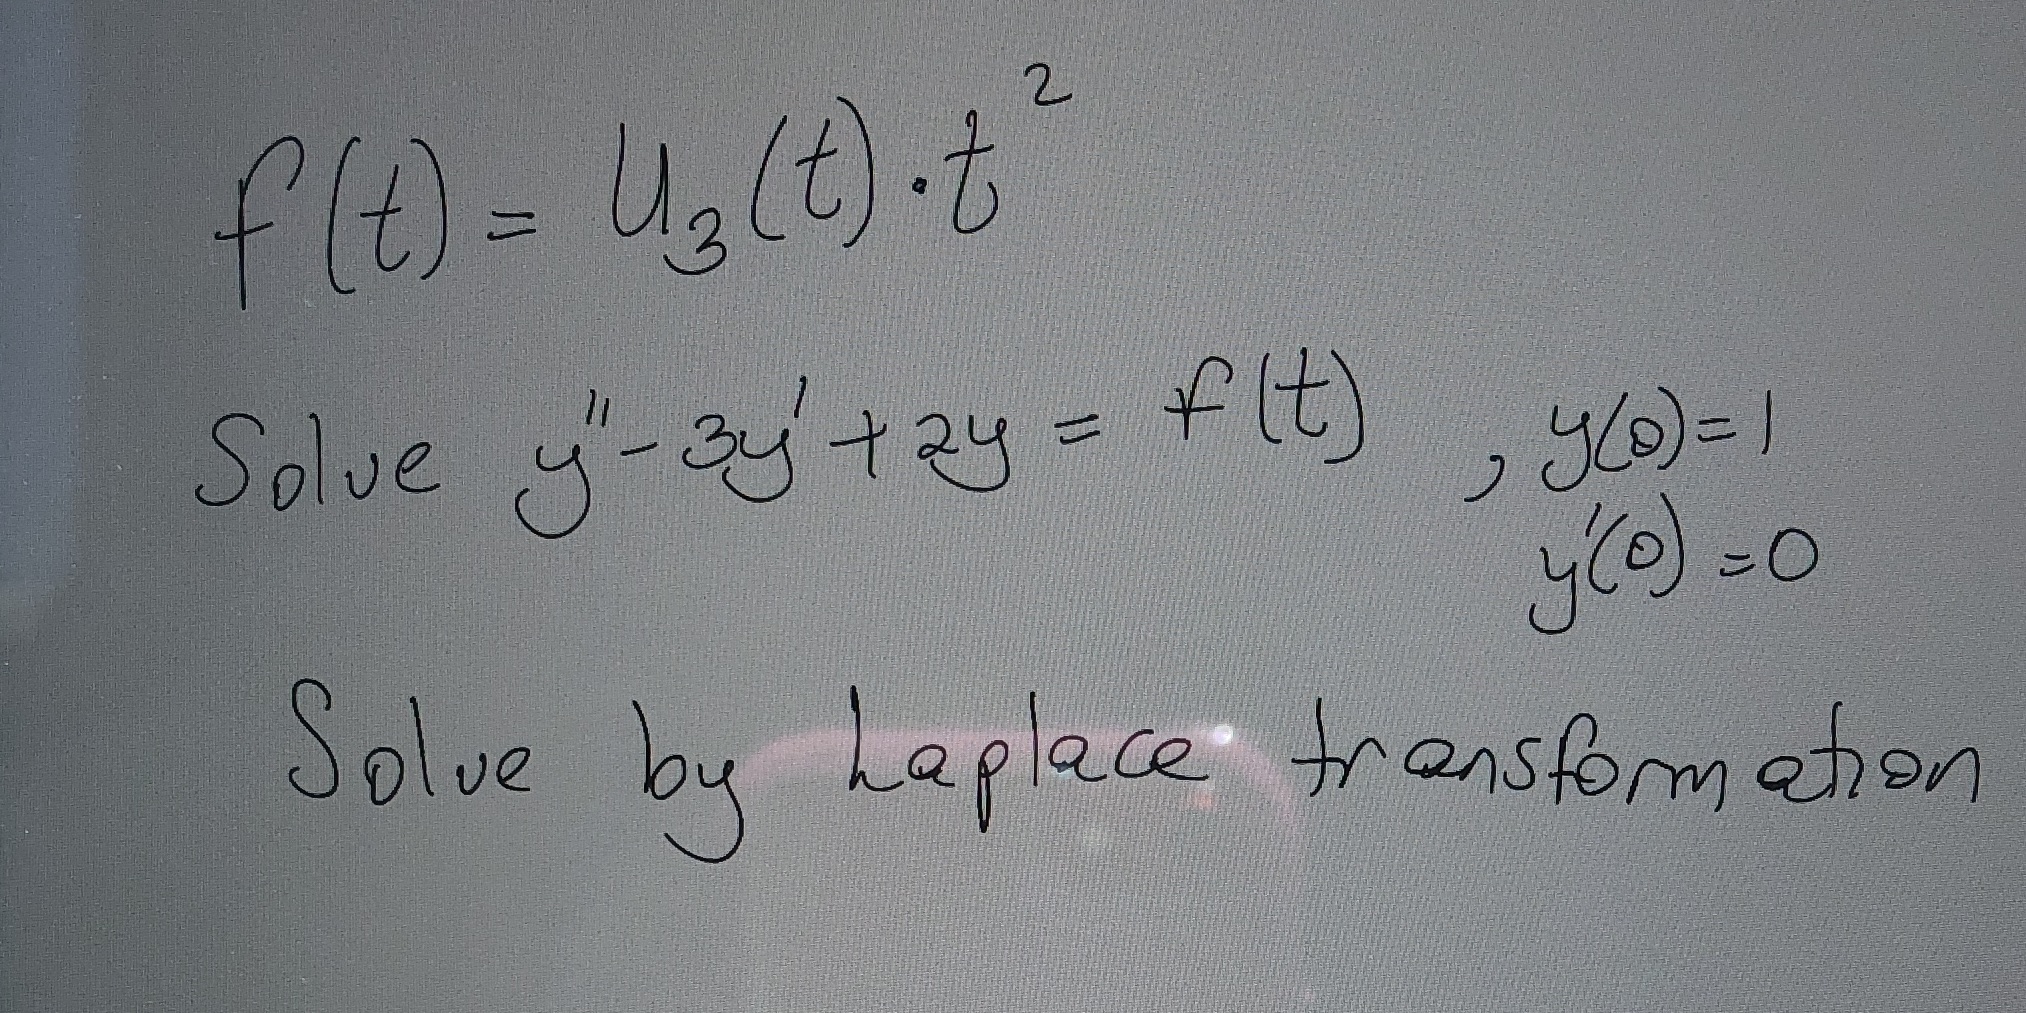 f(t) = u₃(t)·t²
Solve y'' - 3y' + 2y = f(t) , y(0) = 1
y'(0) = 0
Solve by Laplace transformation